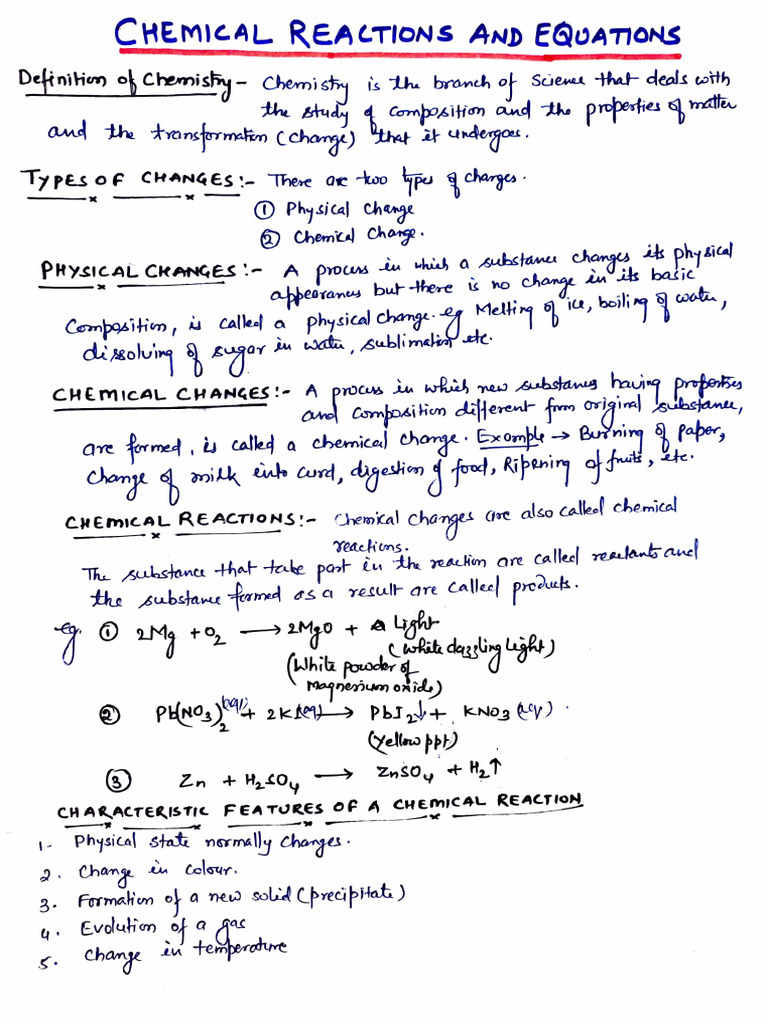 CHEMICAL REACTIONS AND EQUATIONS
Definition of Chemistry - Chemistry is the branch of Science that deals with
the study of composition and the properties of matter
and the transformation (change) that it undergoes.
TYPES OF CHANGES:- There are two types of changes.
① Physical Change
② Chemical Change.
PHYSICAL CHANGES:- A process in which a substance changes its physical
appearances but there is no change in its basic
Composition, is called a physical change. eg Melting of ice, boiling of water,
dissolving of sugar in water, sublimation etc.
CHEMICAL CHANGES:- A process in which new substances having properties
and composition different from original substance,
are formed, is called a chemical change. Example → Burning of paper,
Change of milk into curd, digestion of food, Ripening of fruits, etc.
CHEMICAL REACTIONS:- Chemical changes are also called chemical
reactions.
The substance that take part in the reaction are called reactants and
the substance formed as a result are called products.
eg. ① 2Mg + O₂ → 2MgO + Light
(White dazzling light)
(White powder of
Magnesium oxide)
② Pb(NO₃)₂(aq) + 2KI(aq) → PbI₂↓ + KNO₃(aq).
(Yellow ppt)
③ Zn + H₂SO₄ → ZnSO₄ + H₂↑
CHARACTERISTIC FEATURES OF A CHEMICAL REACTION
1- Physical state normally changes.
2. Change in colour.
3. Formation of a new solid (precipitate)
4. Evolution of a gas
5. Change in temperature